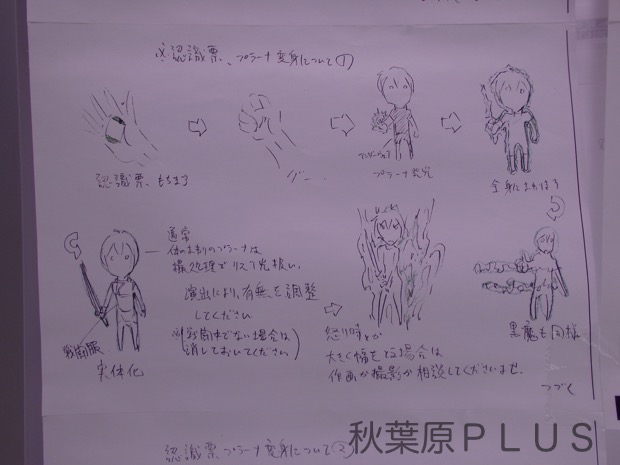 ※認識票、プラーナ変身について①
認識票もちます
グー
アンダーウェア
プラーナ発光
全身にまわぱす
通常
体のまわりのプラーナは
撮処理でリスマスク扱い。
演出により、有無を調整
してください
(※戦闘体でない場合は
消しておいてください)
戦闘服
実体化
怒り時とか
大きく幅をとる場合は
作画か撮影か相談してくださいませ.
黒魔も同様
つづく
認識票プラーナ変身について②
秋葉原ＰＬＵＳ